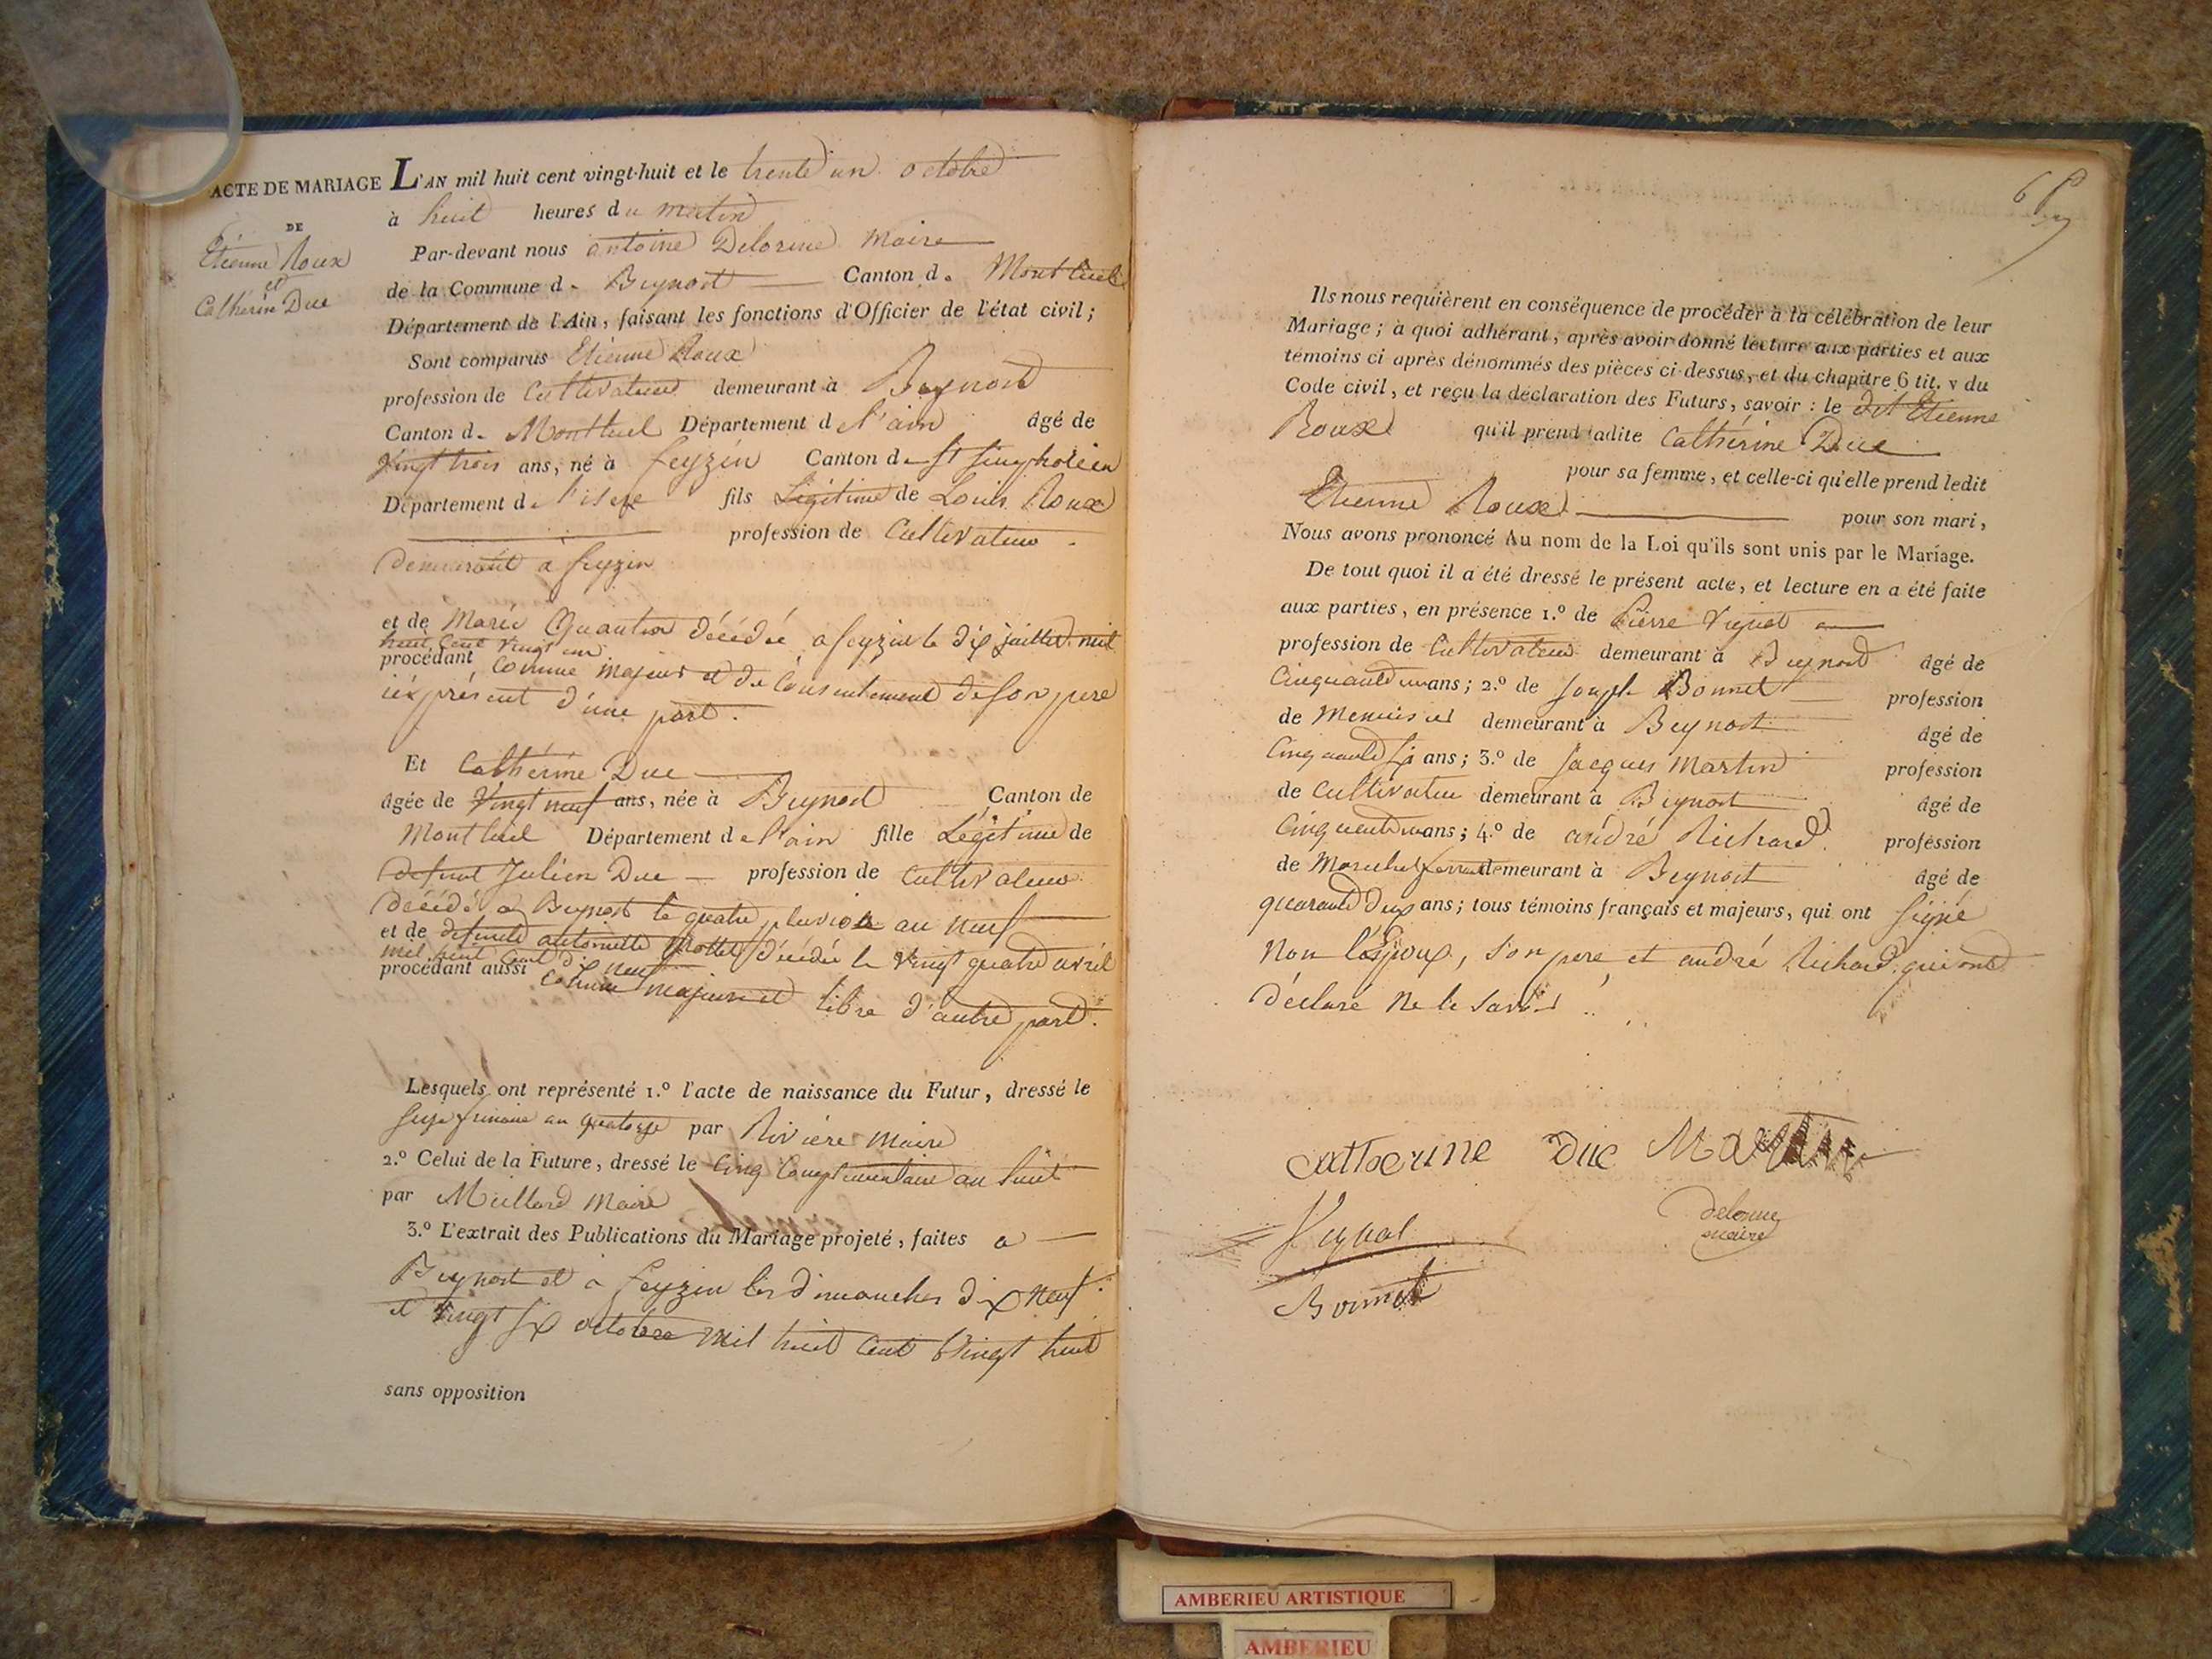 ACTE DE MARIAGE L'AN mil huit cent vingt-huit et le trente un octobre
DE
Etienne Roux
et
Catherine Duc
à huit heures du matin
Par-devant nous antoine Delorme Maire
de la Commune de Beynost Canton de Montluel
Département de l'Ain, faisant les fonctions d'Officier de l'état civil;
Sont comparus Etienne Roux
profession de Cultivateur demeurant à Beynost
Canton de Montluel Département de l'ain âgé de
Vingt trois ans, né à feyzin Canton de st simphorien
Département de l'isere fils Légitime de Louis Roux
profession de Cultivateur
demeurant a feyzin
et de Marie décédée a feyzin le dix juillet mil
huit Cent Vingt un
procédant Comme majeur et de Consentement de son pere
ici présent d'une part.
Et Cathérine Duc
âgée de Vingt neuf ans, née à Beynost Canton de
Montluel Département de l'ain fille Légitime de
defunt Julien Duc profession de Cultivateur
décédé a Beynost le quatre pluviose an neuf
et de defunte antoinette Mottet décédée le Vingt quatre avril
mil huit Cent dix neuf
procédant aussi Comme majeure et libre d'autre part.
Lesquels ont représenté 1.º l'acte de naissance du Futur, dressé le
frimaire an quatorze par Rivière Maire
2.º Celui de la Future, dressé le Cinq Complementaire an huit
par Maire
3.º L'extrait des Publications du Mariage projeté, faites a
Beynost et a feyzin les dimanches dix neuf
et Vingt six octobre mil huit Cent Vingt huit
sans opposition
Ils nous requièrent en conséquence de procéder à la célébration de leur
Mariage; à quoi adhérant, après avoir donné lecture aux parties et aux
témoins ci après dénommés des pièces ci-dessus, et du chapitre 6 tit. v du
Code civil, et reçu la déclaration des Futurs, savoir: le dit Etienne
Roux qu'il prend ladite Cathérine Duc
pour sa femme, et celle-ci qu'elle prend ledit
Etienne Roux pour son mari,
Nous avons prononcé Au nom de la Loi qu'ils sont unis par le Mariage.
De tout quoi il a été dressé le présent acte, et lecture en a été faite
aux parties, en présence 1.º de Pierre Vignat
profession de Cultivateur demeurant à Beynost âgé de
Cinquante un ans; 2.º de Joseph Bonnet profession
de Menuisier demeurant à Beynost âgé de
Cinquante six ans; 3.º de Jacques Martin profession
de Cultivateur demeurant à Beynost âgé de
Cinquante un ans; 4.º de andré Richard profession
de Marechal ferrant demeurant à Beynost âgé de
quarante deux ans; tous témoins français et majeurs, qui ont signé
Non l'époux, son pere et andré Richard qui ont
déclaré ne le savoir
catherine Duc Martin
delorme
maire
Vignat
Bonnet
AMBERIEU ARTISTIQUE
AMBERIEU